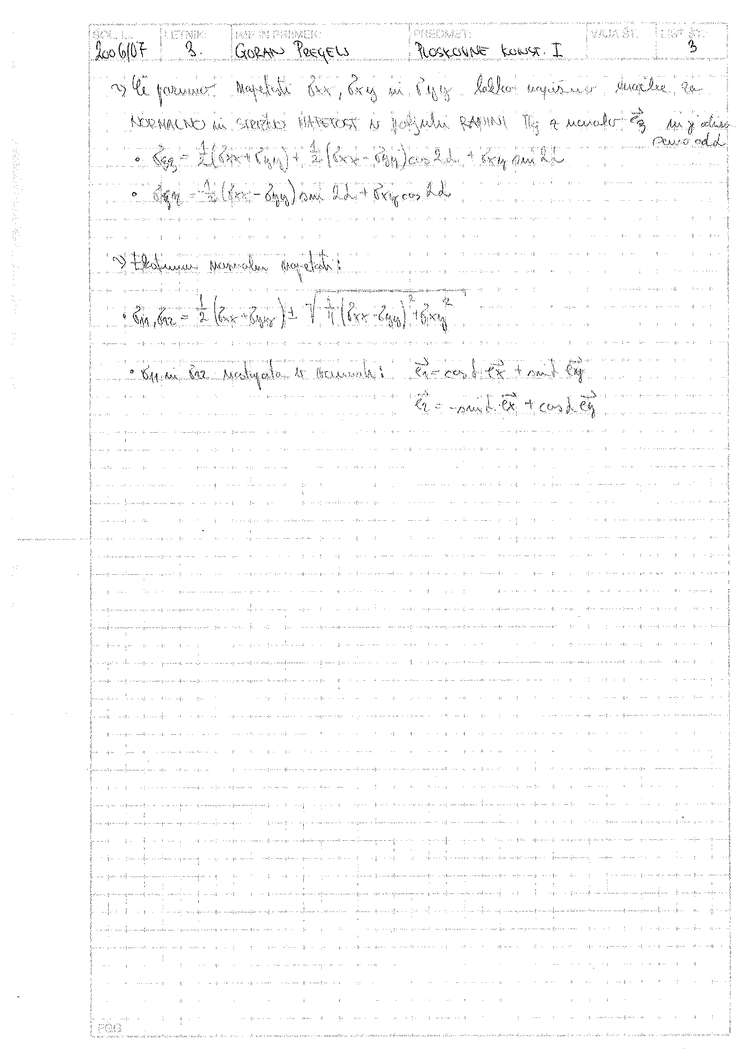 ŠOL. L.: LETNIK: IME IN PRIIMEK: PREDMET: VAJA ŠT.: LIST ŠT.:
2006/07 3. GORAN PREGELJ PLOSKOVNE KONST. I 3
→ Če poznamo napetosti σxx, σxy in σyy lahko napišemo enačbe za
NORMALNO in STRIŽNO NAPETOST v poljubni RAVNINI Πξ z normalo e⃗ξ
samo od α
• σξξ = 1/2 (σxx + σyy) + 1/2 (σxx - σyy) cos 2α + σxy sin 2α
• σξη = -1/2 (σxx - σyy) sin 2α + σxy cos 2α
→ Ekstremne normalne napetosti:
• σ11, σ22 = 1/2 (σxx + σyy) ± √(1/4 (σxx - σyy)² + σxy²)
• σ11 in σ22 nastopata v ravninah: e⃗1 = cos α e⃗x + sin α e⃗y
e⃗2 = -sin α e⃗x + cos α e⃗y
FGG